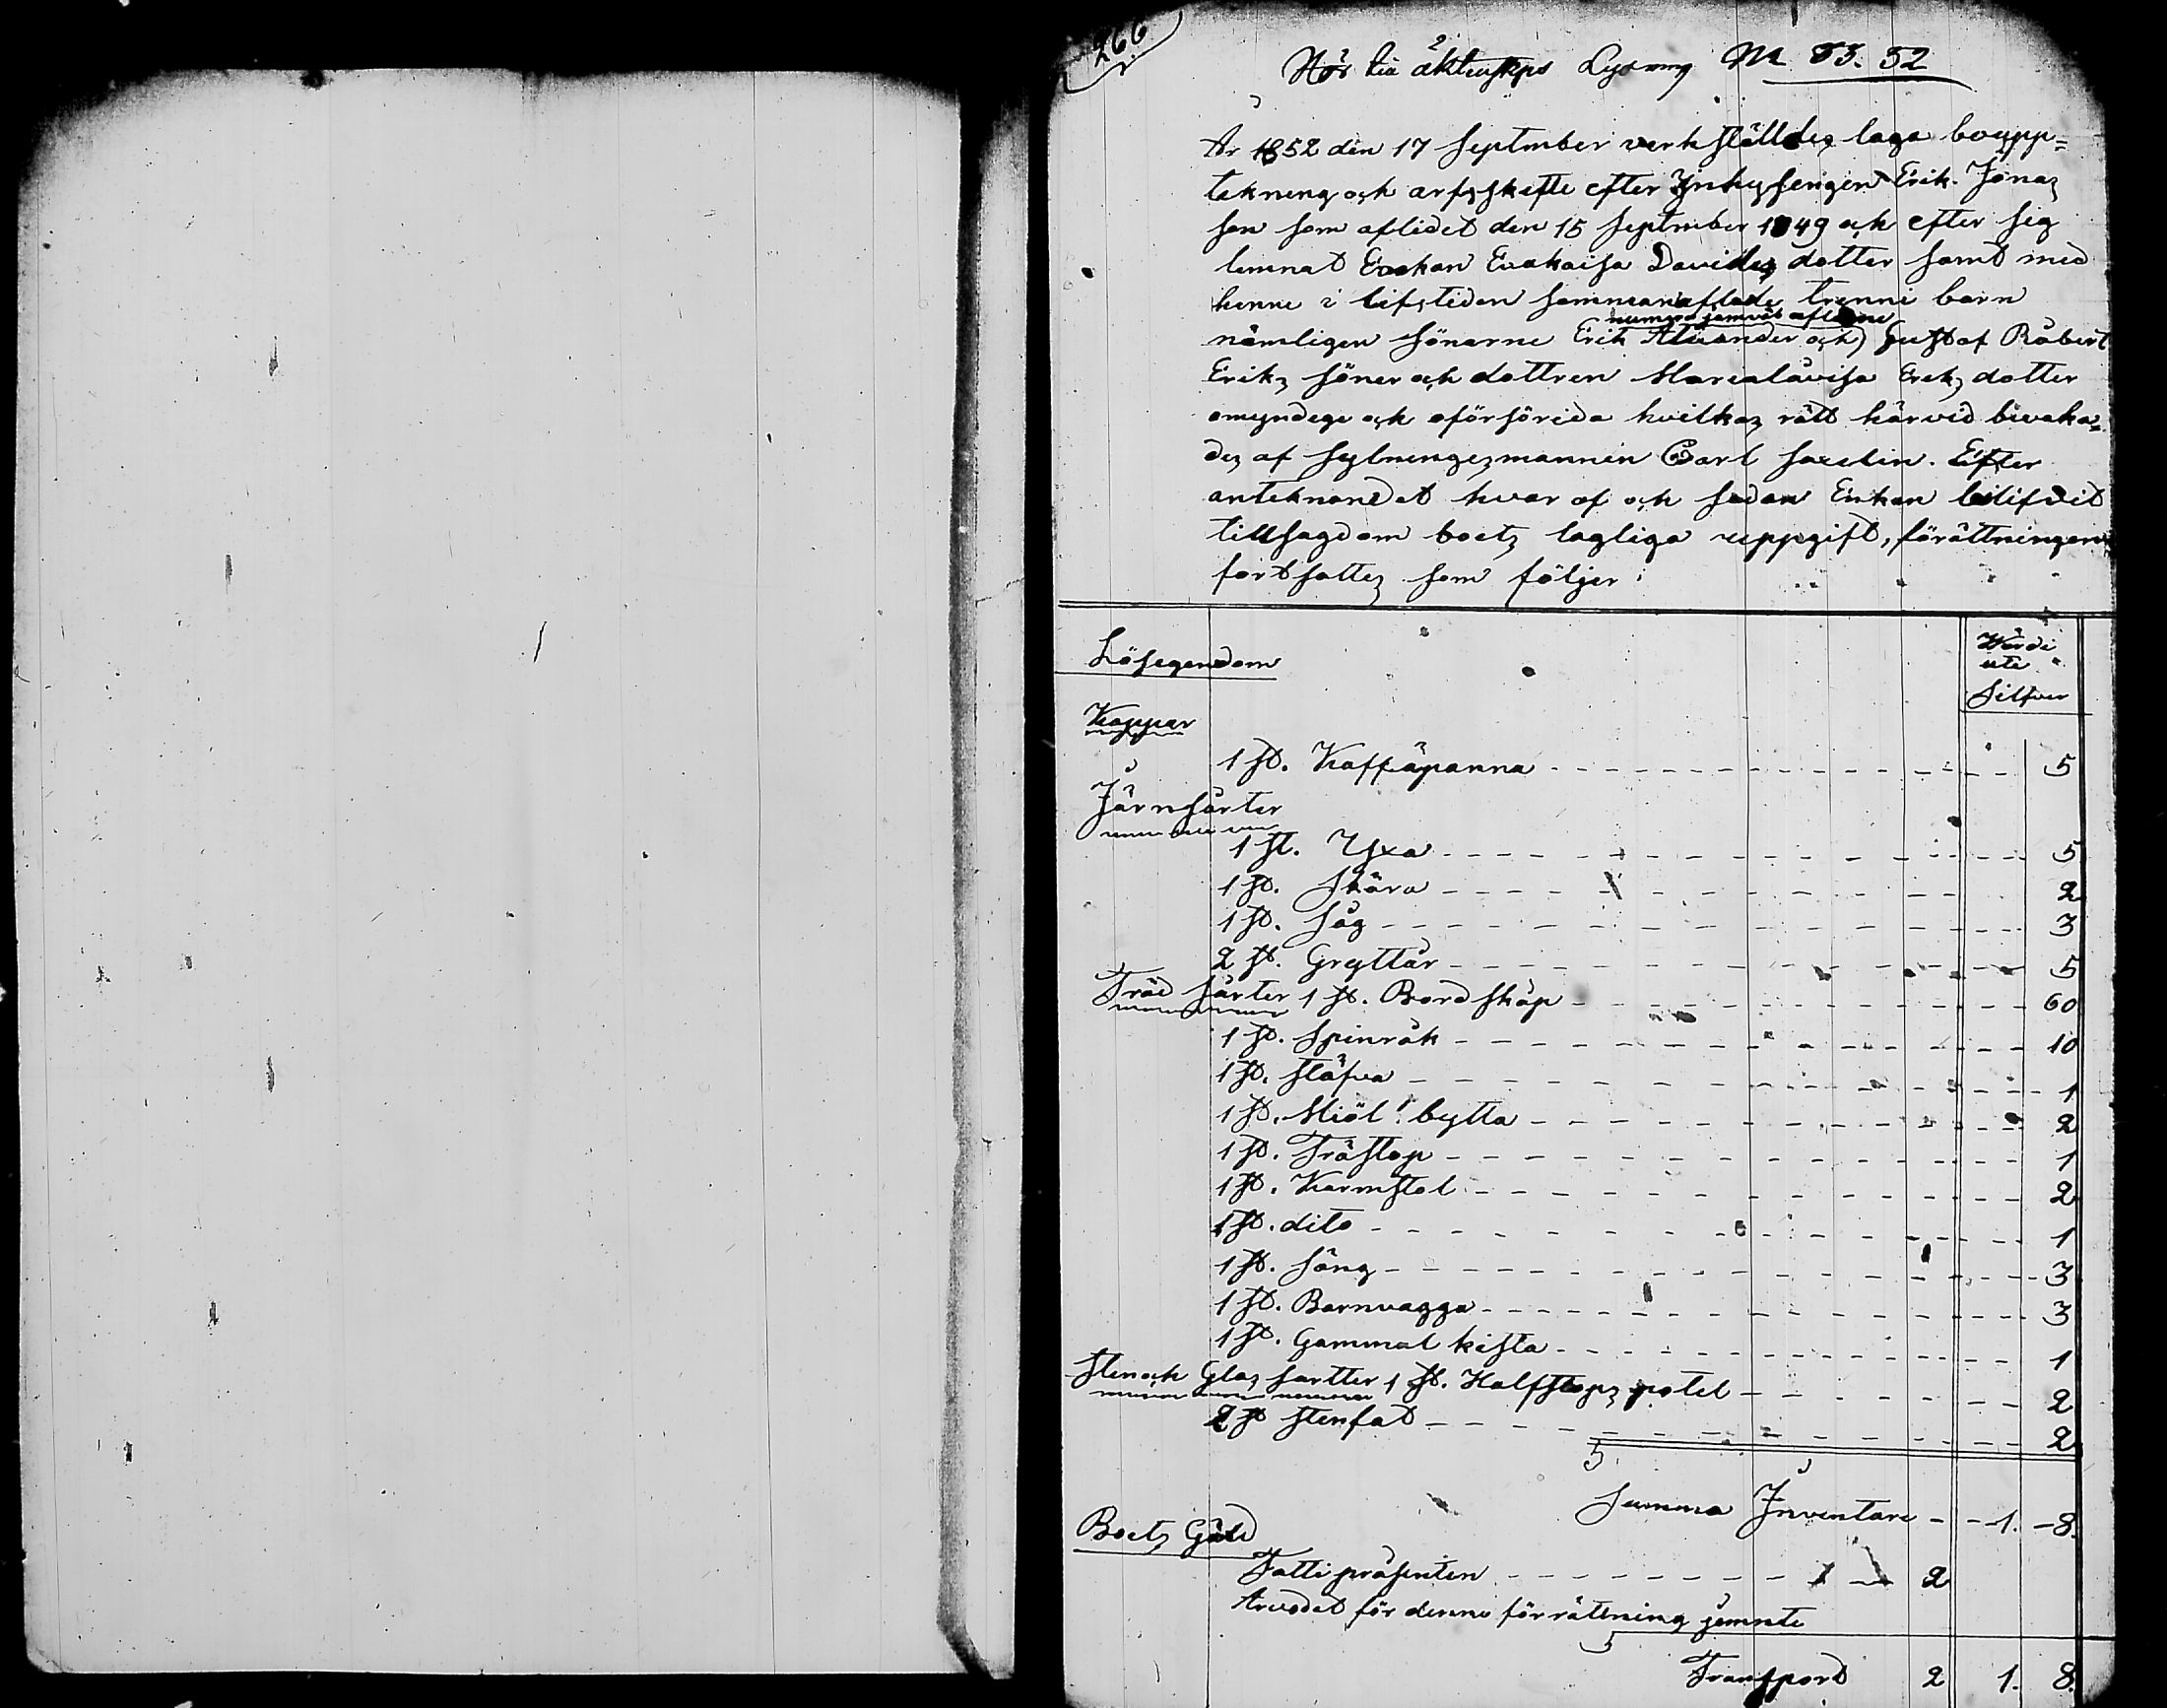 266
Hör till äktenskps Lysning M 53. 52
År 1852 den 17 September verkställdes laga boupp=
tekning och arfsskifte efter Inhysingen Erik Jönas
son som aflidet den 15 September 1849 och efter sig
lemnat Enkan Evakaisa Davids dotter samt med
henne i lifstiden sammanaflade trenne barn
numera jemväl aflidne
nämligen sönarne Erik Alexander och) Gustaf Råbert
Eriks söner och dottren Marialåvisa Eriks dotter
omyndige och oförsörida hvilkas rätt härvid bivaka=
des af fylningesmannin Carl Saxelin. Efter
anteknandet hvar af och sedan Enkan blifvit
tillsagd om boets lagliga uppgift, förättningen
fortsattes som följer:
Lösegendom
Värde
uti
Silfver
Koppar
1 st. Kaffäpanna 5
Järnsarter
1 st. Yxa 5
1 st. Skära 2
1 st. Såg 3
2 st. Gryttar 5
Träd sarter 1 st. Bordskåp 60
1 st. Spinråk 10
1 st. stäfva 1
1 st. Miöl bytta 2
1 st. Trästop 1
1 st. Karmstol 2
1 st. dito 1
1 st. säng 3
1 st. Barnvagga 3
1 st. Gammal kista 1
Sten och Glas sartter 1 st. Halfstops potel 2
2 st stenfat 2
Summa Inventare 1. 8.
Boets Gäld
Fattiprosenten 2
Arvodet för denne förrättning jemnte
Transport 2 1. 8.